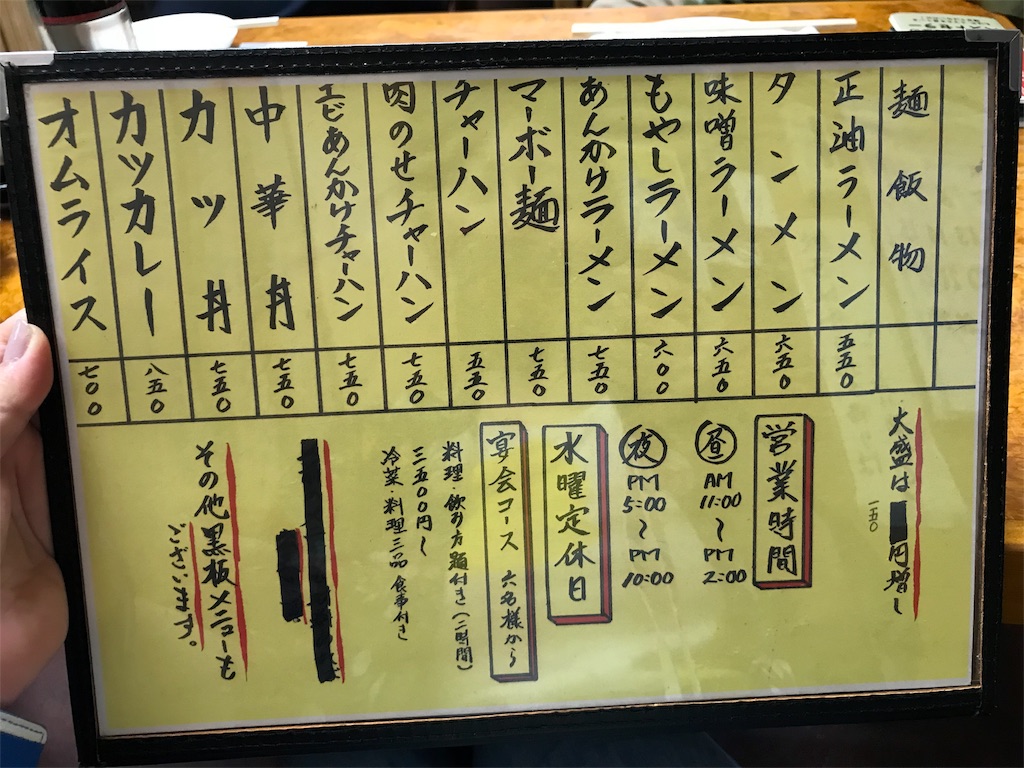 麺飯物
正油ラーメン 五五〇
タンメン 六五〇
味噌ラーメン 六五〇
もやしラーメン 六〇〇
あんかけラーメン 七五〇
マーボー麺 七五〇
チャーハン 五五〇
肉のせチャーハン 七五〇
エビあんかけチャーハン 七五〇
中華丼 七五〇
カツ丼 七五〇
カツカレー 八五〇
オムライス 七〇〇
大盛は円増し
一五〇
営業時間
昼 AM 11:00〜PM 2:00
夜 PM 5:00〜PM 10:00
水曜定休日
宴会コース 六名様から
料理・飲み方題付き(二時間)
三五〇〇円〜
冷菜・料理三品 食事付き
その他黒板メニューも
ございます。